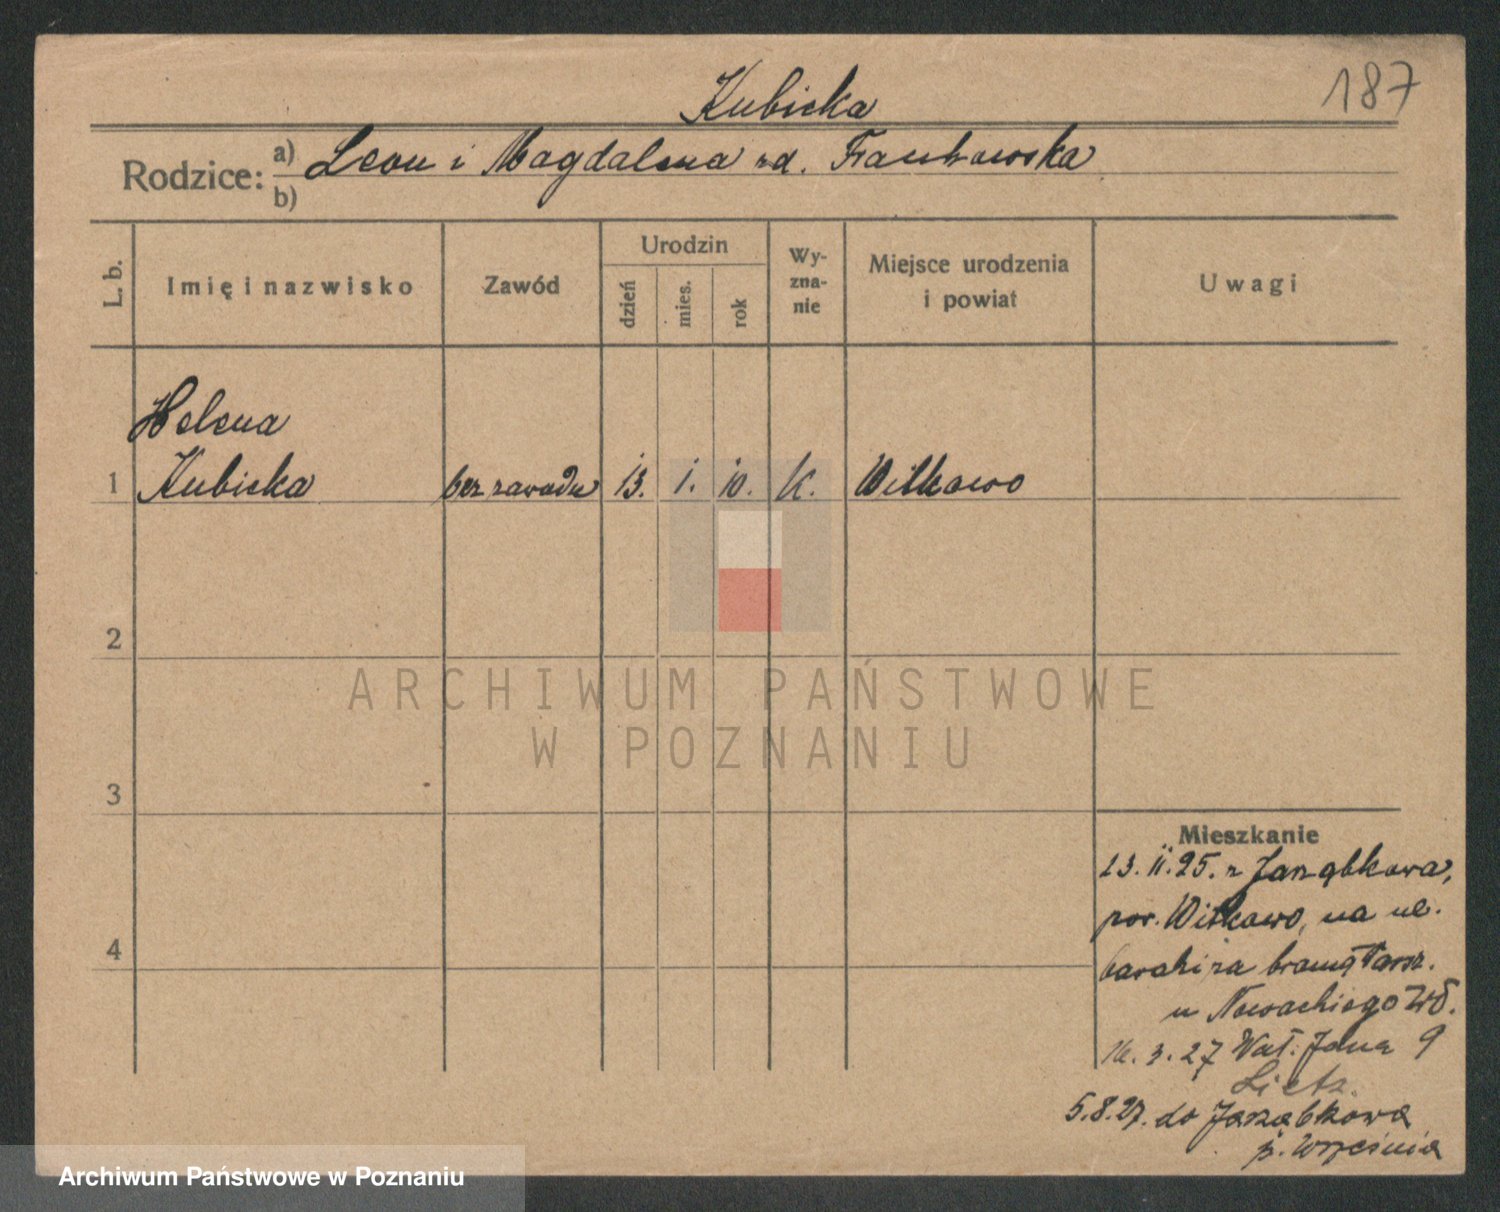 187
Kubicka
Rodzice: a) Leon i Magdalena zd. Frankowska
b)
L. b. Imię i nazwisko Zawód Urodzin dzień mies. rok Wyznanie Miejsce urodzenia i powiat Uwagi
Helena
1 Kubicka bez zawodu 13. 1. 10. k. Witkowo
2
ARCHIWUM PAŃSTWOWE
W POZNANIU
3
Mieszkanie
13. II. 25. z Jarząbkowa,
pow. Witkowo, na ul.
4
baraki za bramą Warsz.
u Nowackiego
16. 3. 27 Wał. Jana 9
5.8.27. do Jarząbkowa
p. Września
Archiwum Państwowe w Poznaniu